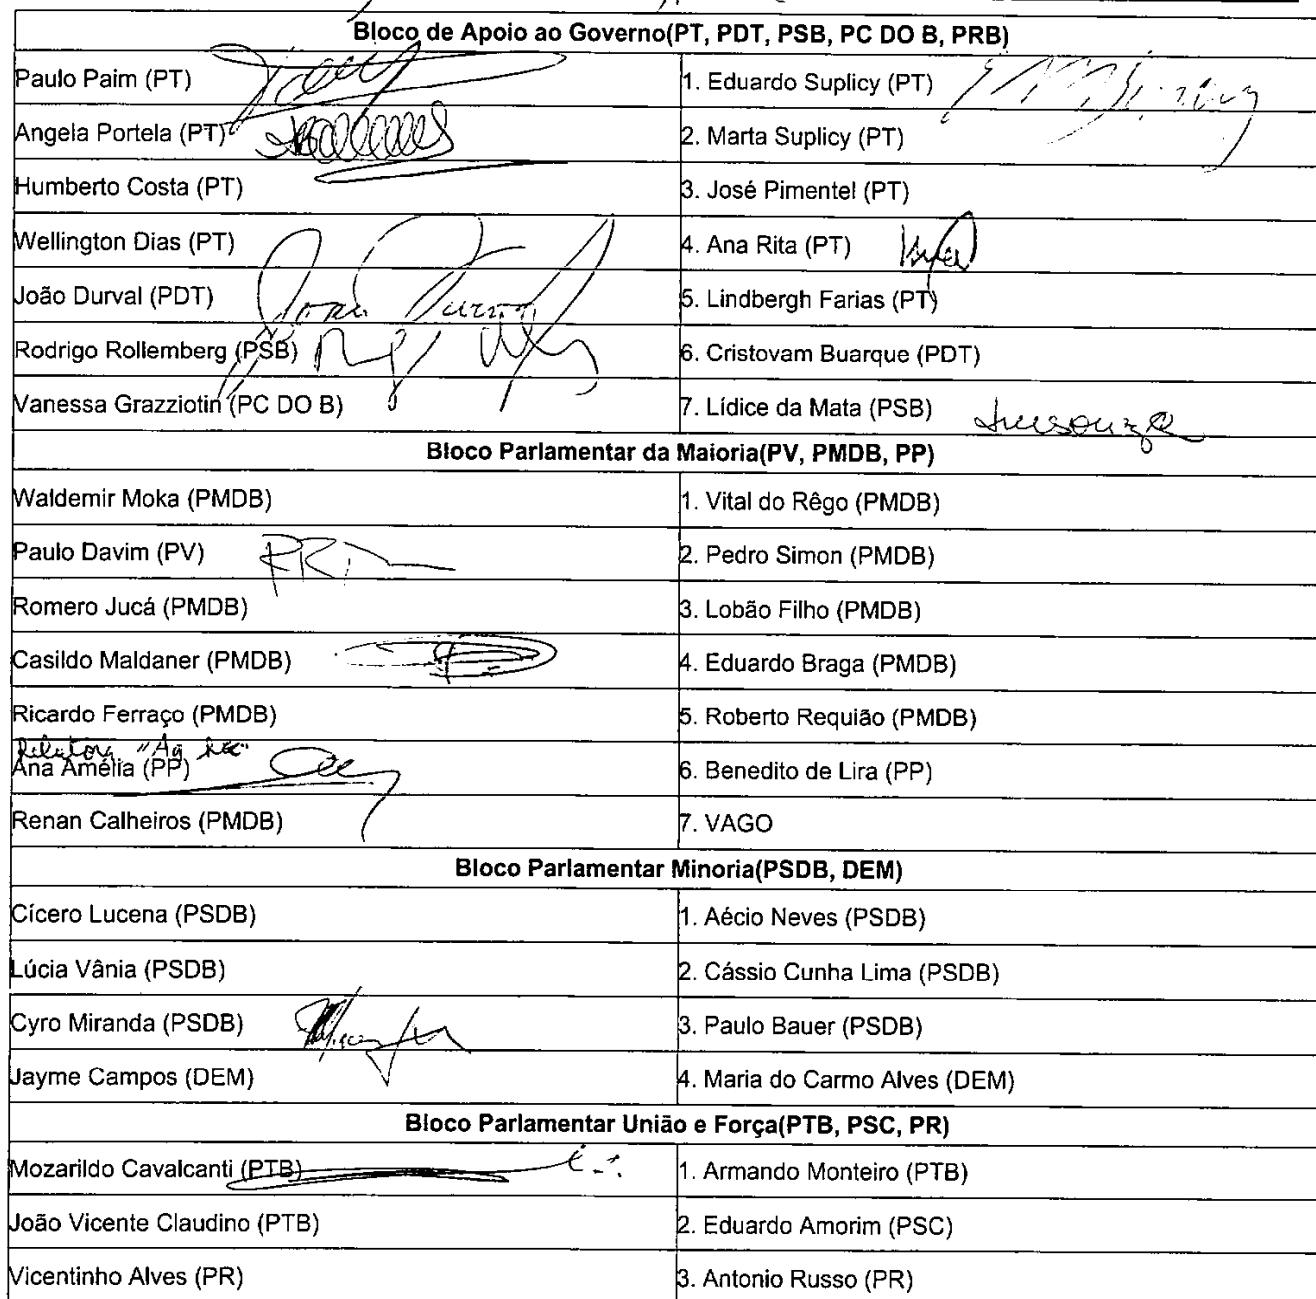 Bloco de Apoio ao Governo(PT, PDT, PSB, PC DO B, PRB)
Paulo Paim (PT) 1. Eduardo Suplicy (PT)
Angela Portela (PT) 2. Marta Suplicy (PT)
Humberto Costa (PT) 3. José Pimentel (PT)
Wellington Dias (PT) 4. Ana Rita (PT)
João Durval (PDT) 5. Lindbergh Farias (PT)
Rodrigo Rollemberg (PSB) 6. Cristovam Buarque (PDT)
Vanessa Grazziotin (PC DO B) 7. Lídice da Mata (PSB)
Bloco Parlamentar da Maioria(PV, PMDB, PP)
Waldemir Moka (PMDB) 1. Vital do Rêgo (PMDB)
Paulo Davim (PV) 2. Pedro Simon (PMDB)
Romero Jucá (PMDB) 3. Lobão Filho (PMDB)
Casildo Maldaner (PMDB) 4. Eduardo Braga (PMDB)
Ricardo Ferraço (PMDB) 5. Roberto Requião (PMDB)
Ana Amélia (PP) 6. Benedito de Lira (PP)
Renan Calheiros (PMDB) 7. VAGO
Bloco Parlamentar Minoria(PSDB, DEM)
Cícero Lucena (PSDB) 1. Aécio Neves (PSDB)
Lúcia Vânia (PSDB) 2. Cássio Cunha Lima (PSDB)
Cyro Miranda (PSDB) 3. Paulo Bauer (PSDB)
Jayme Campos (DEM) 4. Maria do Carmo Alves (DEM)
Bloco Parlamentar União e Força(PTB, PSC, PR)
Mozarildo Cavalcanti (PTB) 1. Armando Monteiro (PTB)
João Vicente Claudino (PTB) 2. Eduardo Amorim (PSC)
Vicentinho Alves (PR) 3. Antonio Russo (PR)